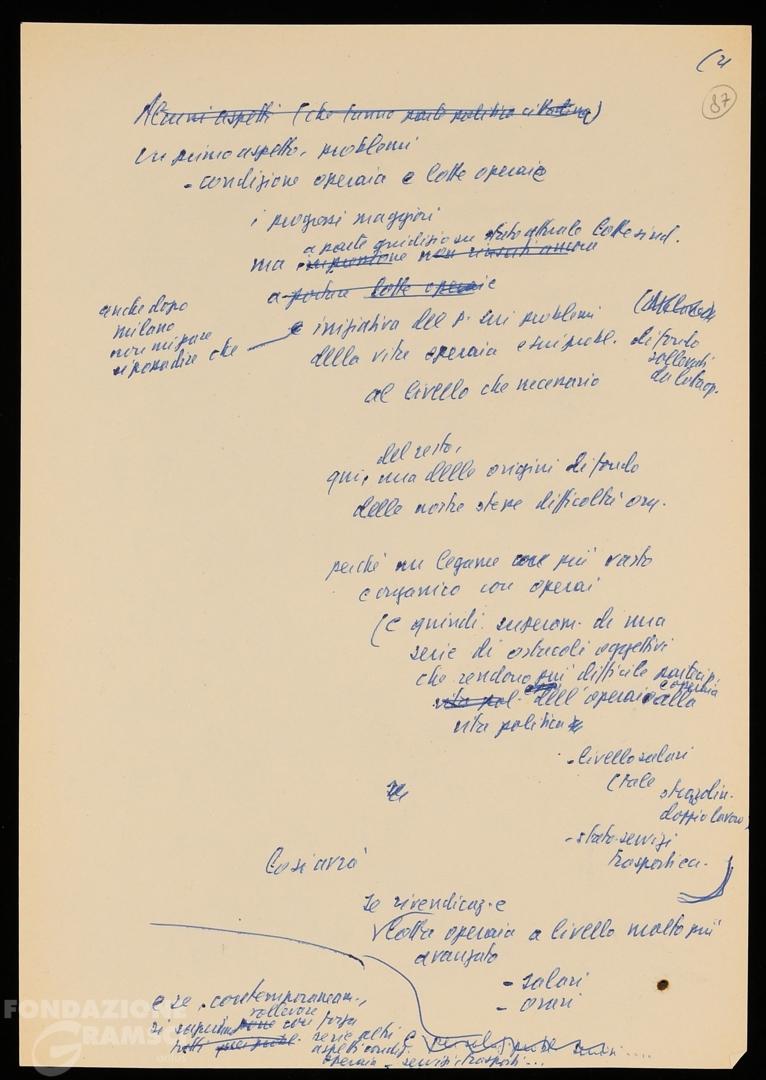 (2
87
Alcuni aspetti (che fanno parte politica cittadina)
un primo aspetto, problemi
- condizione operaia e lotte operaie
i progressi maggiori
a parte giudizio su stato attuale lotte sind.
ma non riusciti ancora
a portare lotte operaie
anche dopo
milano
non mi pare
si possa dire che
e iniziativa del p. sui problemi
della vita operaia e sui probl. di fondo
sollevati
da lotta op.
al livello che necessario
del resto,
qui, una delle origini di fondo
delle nostre stesse difficoltà org.
perché un legame più vasto
e organico con operai
(e quindi superam. di una
serie di ostacoli oggettivi
che rendono più difficile particip.
operaia
vita pol. dell'operaio alla
vita politica
- livello salari
(tale
straordin.
doppio lavoro
- stato servizi
trasporti ca.
Così avrà
se rivendicaz. e
lotta operaia a livello molto più
avanzato
- salari
- orari
e se, contemporaneam.,
sollevare
si saprà con forza
tutti serie altri
aspetti condiz.
operaia - servizi, trasporti...
FONDAZIONE
GRAMSCI